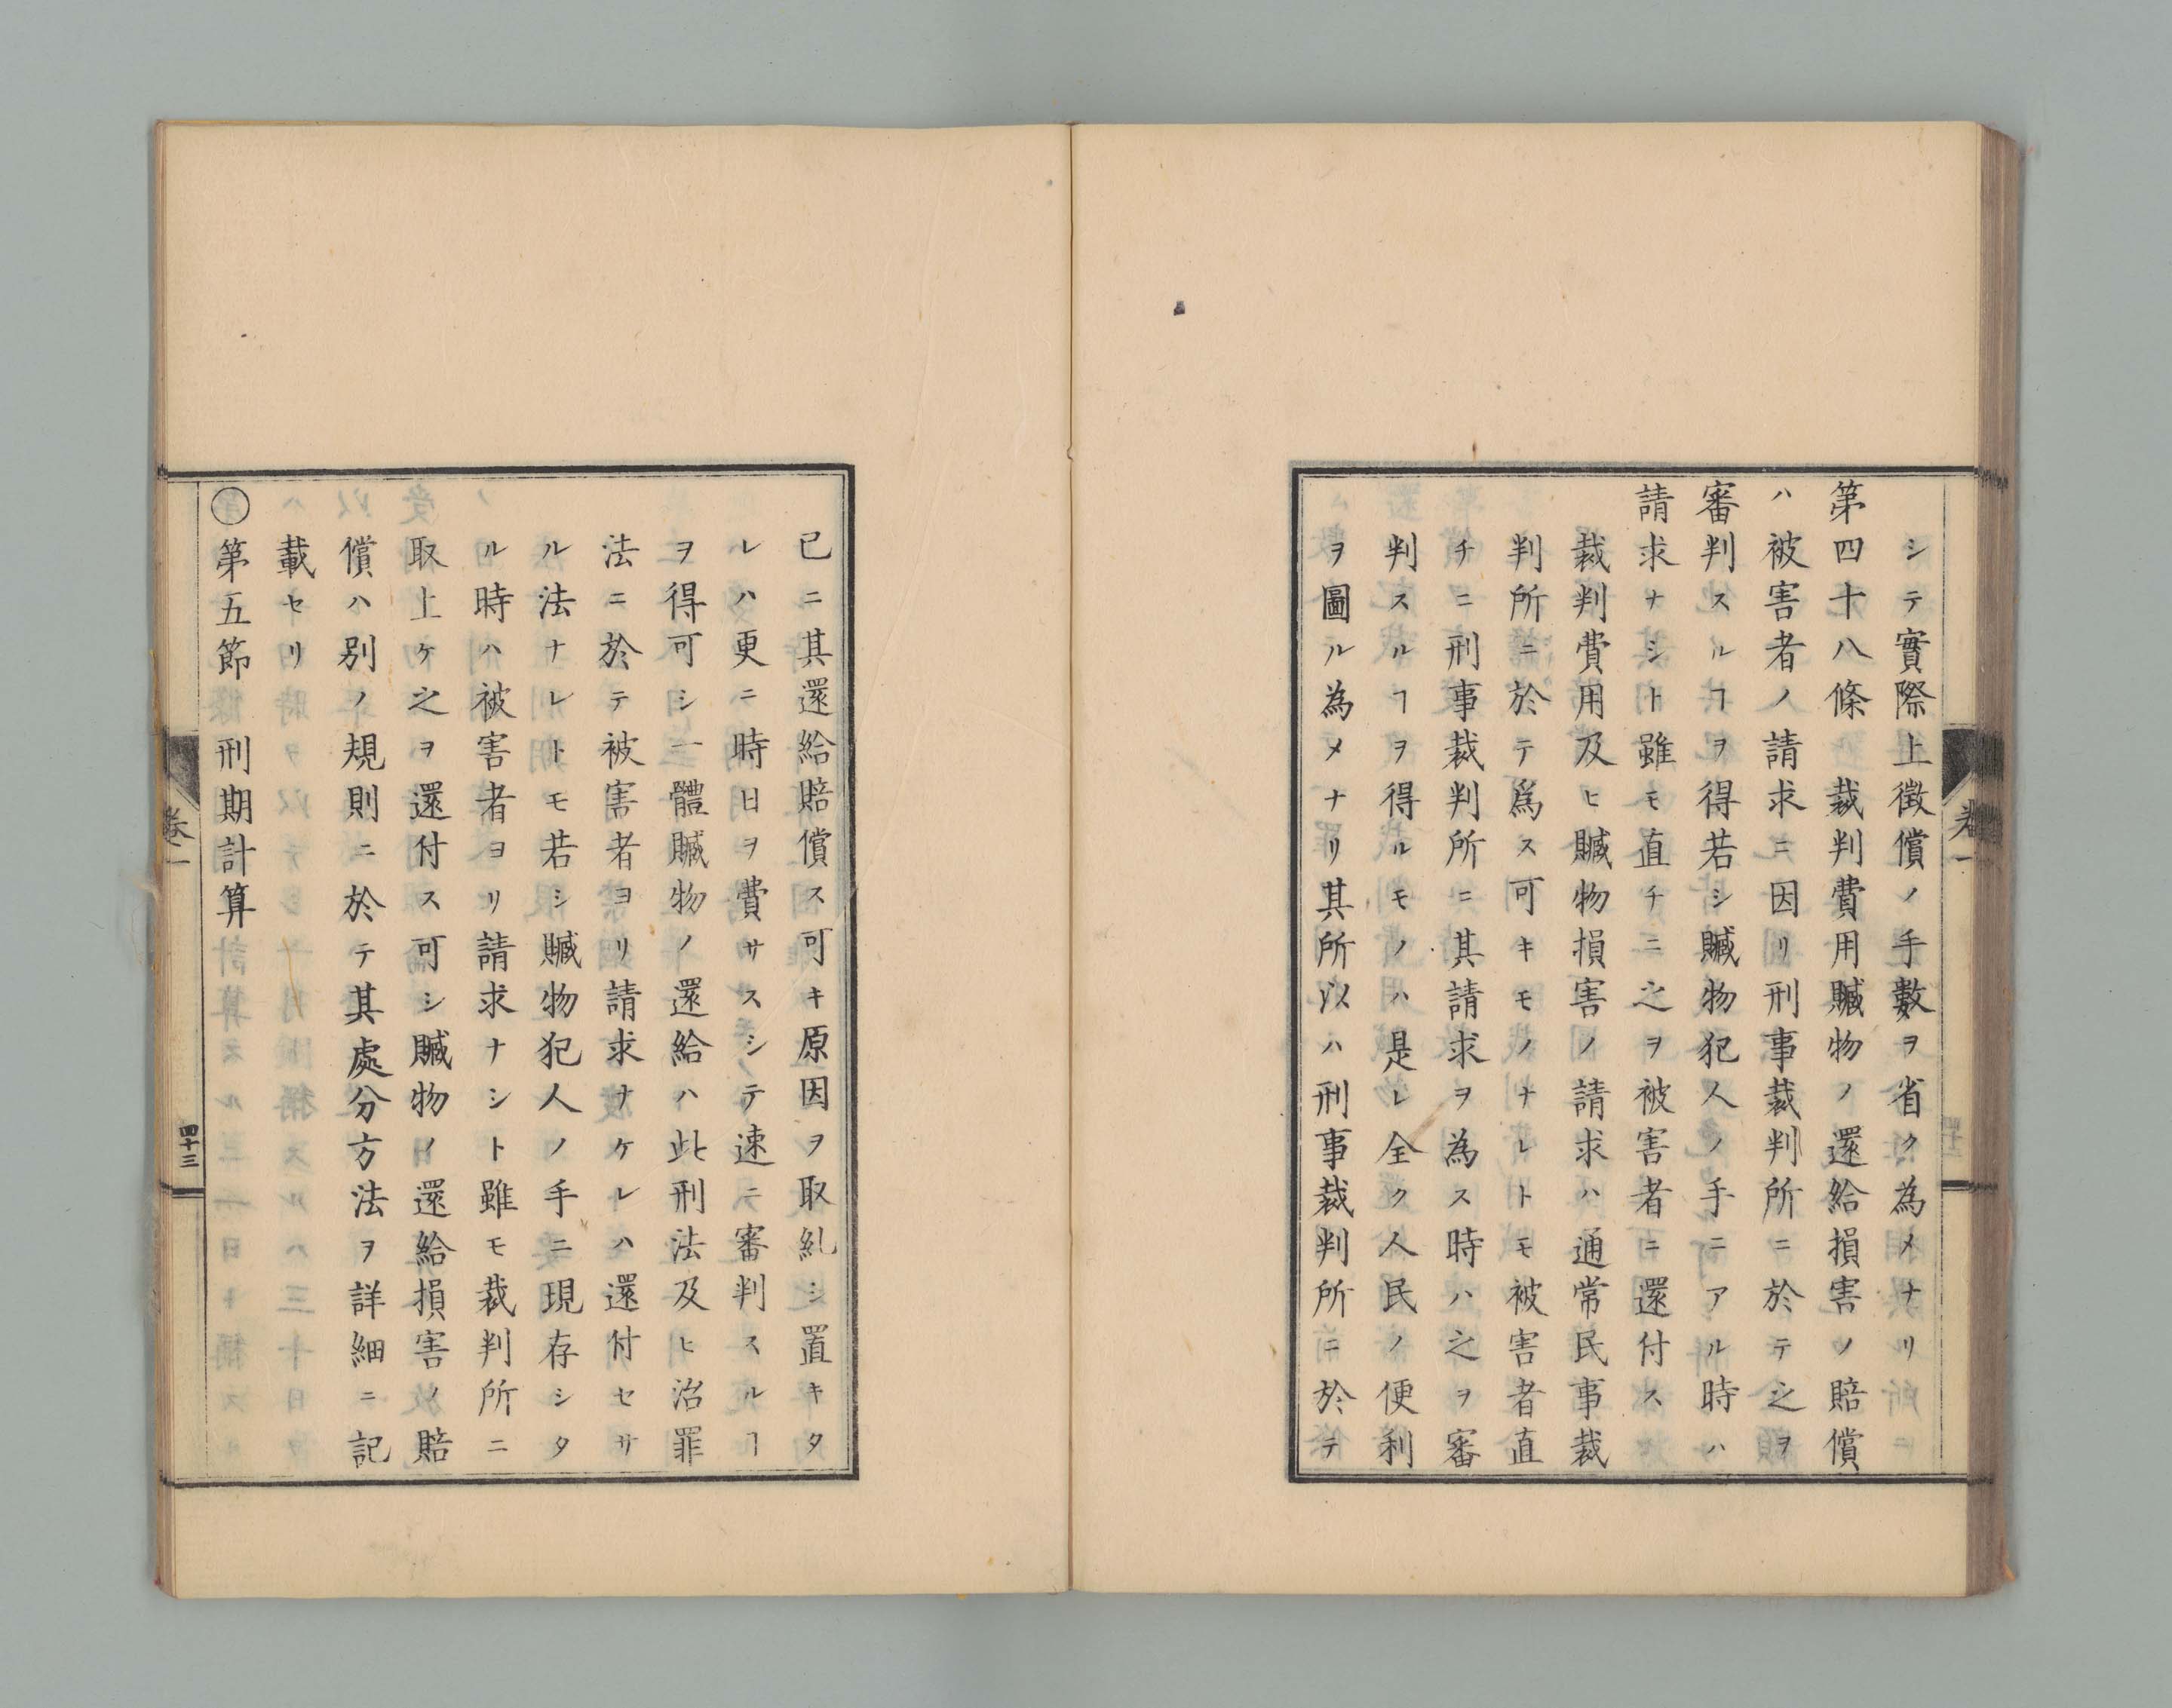 シテ實際上徴償ノ手數ヲ省ク為メナリ
第四十八條 裁判費用贓物ノ還給損害ノ賠償
ハ被害者ノ請求ニ因リ刑事裁判所ニ於テ之ヲ
審判スルヿヲ得若シ贓物犯人ノ手ニアル時ハ
請求ナシト雖モ直チニ之ヲ被害者ニ還付ス
裁判費用及ヒ贓物損害ノ請求ハ通常民事裁
判所ニ於テ爲ス可キモノナレトモ被害者直
チニ刑事裁判所ニ其請求ヲ為ス時ハ之ヲ審
判スルヿヲ得ルモノハ是レ全ク人民ノ便利
ヲ圖ル為メナリ其所以ハ刑事裁判所ニ於テ
卷一
已ニ其還給賠償ス可キ原因ヲ取糺シ置キタ
レハ更ニ時日ヲ費サスシテ速ニ審判スルヿ
ヲ得可シ一體贓物ノ還給ハ此刑法及ヒ治罪
法ニ於テ被害者ヨリ請求ナケレハ還付セサ
ル法ナレトモ若シ贓物犯人ノ手ニ現存シタ
ル時ハ被害者ヨリ請求ナシト雖モ裁判所ニ
取上ケ之ヲ還付ス可シ贓物ノ還給損害ノ賠
償ハ別ノ規則ニ於テ其處分方法ヲ詳細ニ記
載セリ
○第五節 刑期計算
卷一
四十三